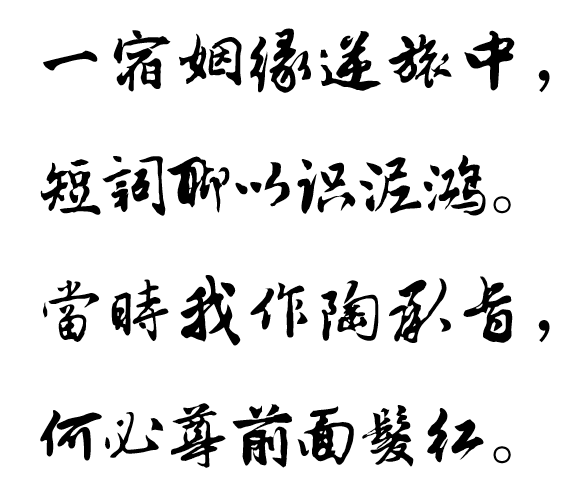 一宿姻缘逆旅中，
短詞聊以识泥鸿。
當時我作陶承旨，
何必尊前面髮红。